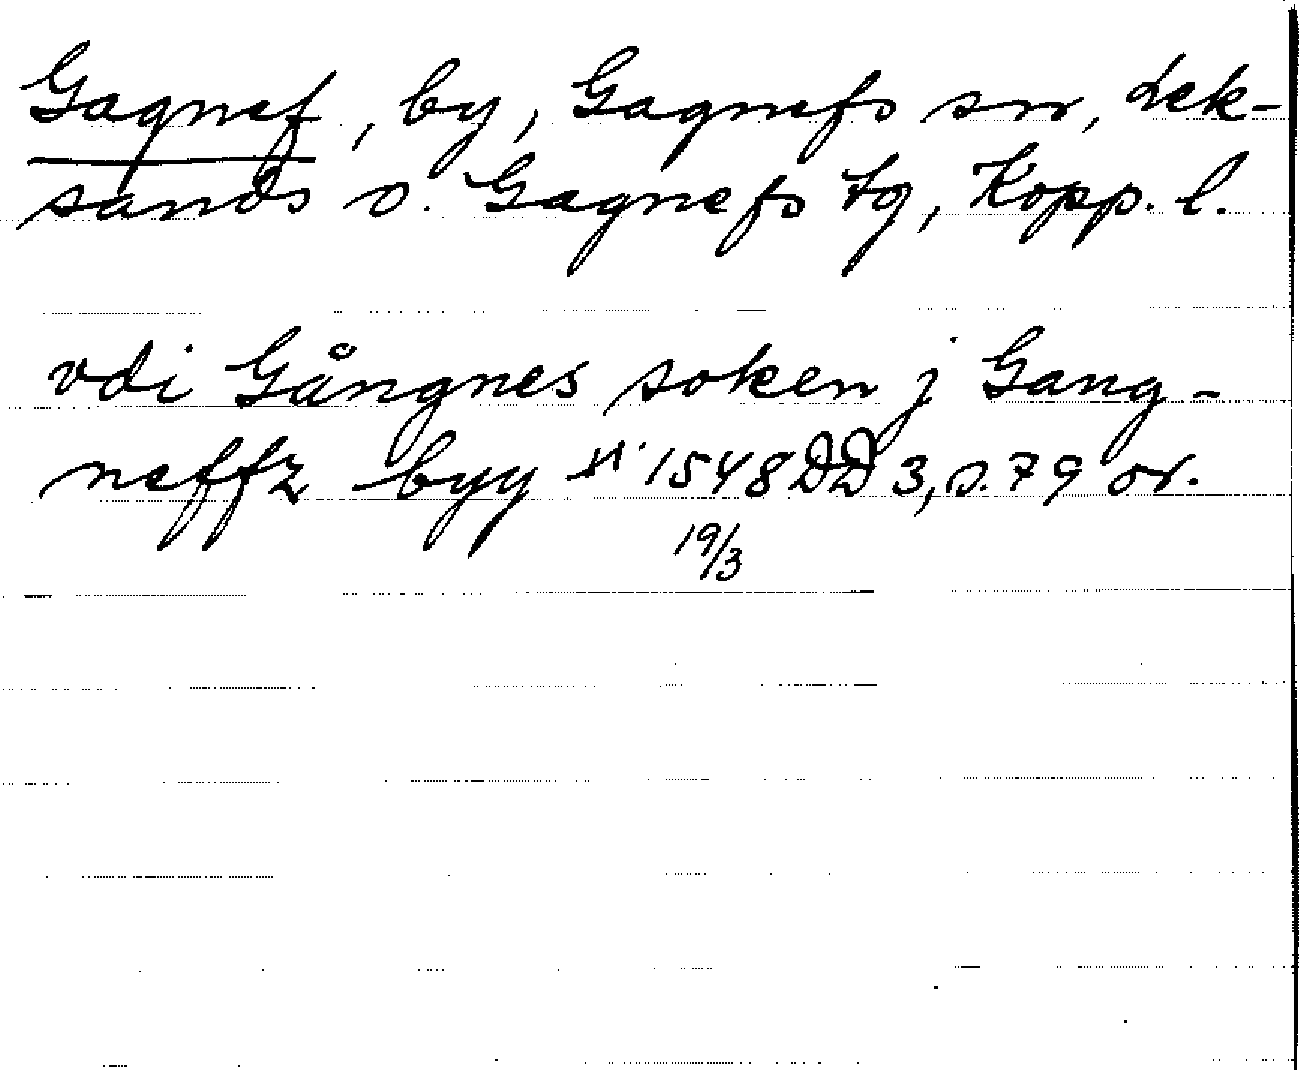 Gagnef, by, Gagnefs sn, Lek-
sands o. Gagnefs tg, Kopp. l.
vdi Gångnes soken j Gang-
neffz byy 1548 DD 3, s. 79 or.
19/3